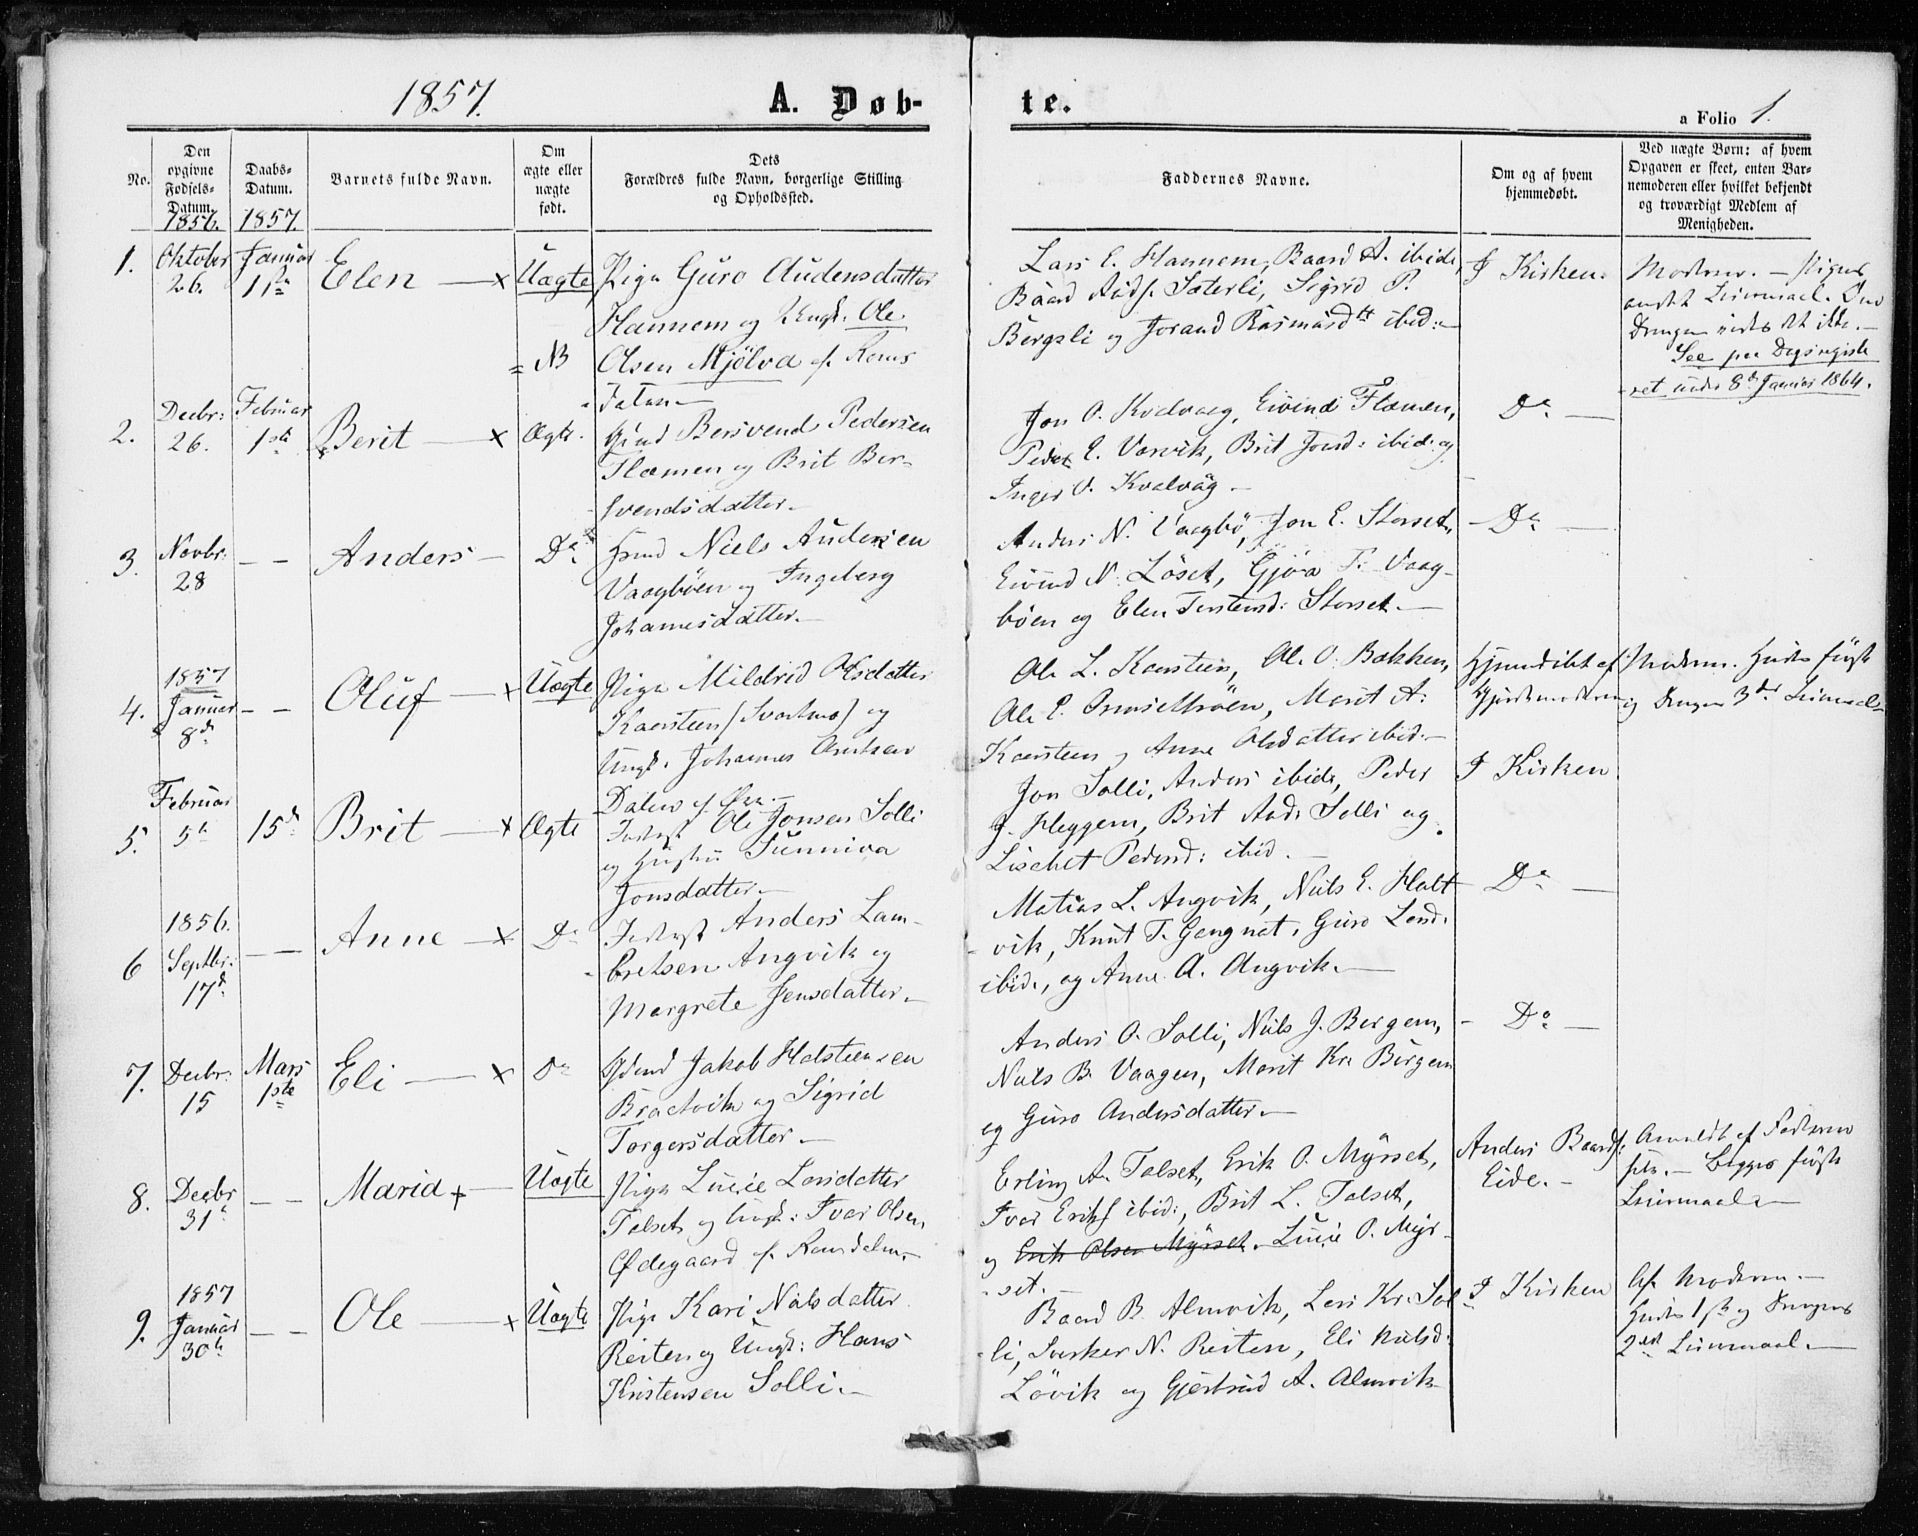 1857.
A. Døb-
te.
a Folio 1.
No.
Den
opgivne
Fødsels-
Datum.
1856.
Daabs-
Datum.
1857.
Barnets fulde Navn.
Om
ægte eller
uægte
født.
Dets
Forældres fulde Navn, borgerlige Stilling
og Opholdssted.
Faddernes Navne.
Om og af hvem
hjemmedøbt.
Ved uægte Børn: af hvem
Opgaven er skeet, enten Bar-
nemoderen eller hvilket bekjendt
og troværdigt Medlem af
Menigheden.
1.
Oktober
26.
Januar
1ste
Elen — x
Uægte
= NB
Pige Guro Audensdatter
Hannem og Ungk. Ole
Olsen Mjölva af Roms
dalen —
Lars E. Hannem, Baard A. ibid,
Baard Sæterli, Sigrid P.
Bergsli og Jorand Rasmusdtt ibid: —
I Kirken.
Moderen. — Pigens
Leiermaal.
Drengen vides det ikke. —
See
ret under 8de Januar 1864.
2.
Decbr:
26.
Februar
1ste
Berit — x
Ægte.
Gbmd Bersvend Pedersen
Flæmen og Brit Ber-
svendsdatter. —
Jon O. Kvalvaag, Eivind Flæmen,
Peder E. Varvik, Brit Jonsd: ibid: og
Inger O. Kvalvåg —
Do —
3.
Novbr.
28
— —
Anders —
Do
Niels Andersen
Vaagböen og Ingeberg
Johannesdatter. —
Anders N. Vaagbö, Jon E. Storset,
Eivind N. Löset, Gjöra T. Vaag-
böen og Elen Torstensd: Storset. —
— Do —
4.
1857
Januar
8de
— —
Oluf — x
Uægte
Pige Mildrid Olsdatter
Kaarsteen (Svartmo) og
Ungk. Johannes
Dalen af Öre. —
Ole L. Kaarsteen, Ole O. Bakken,
Ole E. Marit A.
Kaarsteen og Anne Olsdatter ibid. —
Hjemdöbt af
Gjordemoderen
Moderen. Hendes förste
og Drengens 3die Leiermaal.
5.
Februar
5te
15de
Brit — x
Ægte
Ole Jonsen Solli
og Hustru Sunniva
Jonsdatter. —
Jon Solli, Anders ibid, Peder
J. Heggem, Brit Solli og
Lisebet Pedersd: ibid. —
I Kirken.
6
1856.
Septbr.
17de
— —
Anne — x
Do
Anders Lam-
bretsen Angvik og
Margrete Jensdatter. —
Matias L. Angvik, Niels E. Halt
vik, Knut T. Gengnat, Guro
ibid., og Anne A. Angvik. —
Do —
7.
Decbr.
15
Mars
1ste
Eli — x
Do
Gbmd Jakob Halsteensen
Brætvik og Sigrid
Torgersdatter. —
Anders O. Solli, Niels J. Bergem,
Niels B. Vaagen, Marit Kr. Bergem
og Guro Andersdatter. —
— Do —
8.
Decbr
31te
— —
Maria x —
Uægte
Pige Lucie Larsdatter
Talset og Ungk: Ivar Olsen
Ødegaard af Romsdalen. —
Erling A. Talset, Erik O. Myrset,
Ivar Eriks ibid:, Brit L. Talset,
og Erik Olsen Myrset. Lucie O. Myr-
set. —
Anders Baards:
Eide. —
Anmeldt af Faderen
selv. — Begges förste
Leiermaal. —
9.
1857
Januar
30te
— —
Ole — x
Uægte
Pige Kari Nilsdatter
Reiten og Ungk: Hans
Kristensen Solli. —
Baard B. Almvik, Lars Kr. Sol
li, Sverker N. Reiten, Eli Nielsd.
Lövik og Gjertrud A. Almvik
I Kirken
Af Moderen. —
Hendes 1ste og Drengens
2det Leiermaal. —